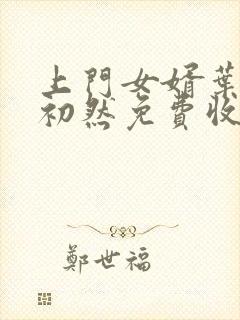 上門女婿葉
初然免費收
鄭世福